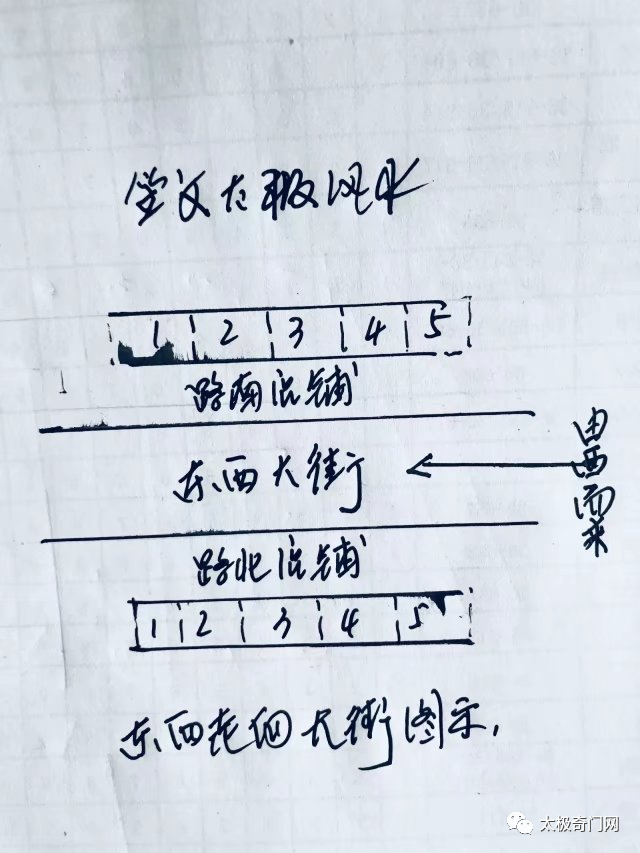 堂文太极风水
1 2 3 4 5
路南店铺
东西大街
由西而来
路北店铺
1 2 3 4 5
东西走向大街图示.
太极奇门网